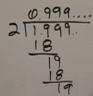 0.999....
2 1.999..
18
19
18
19